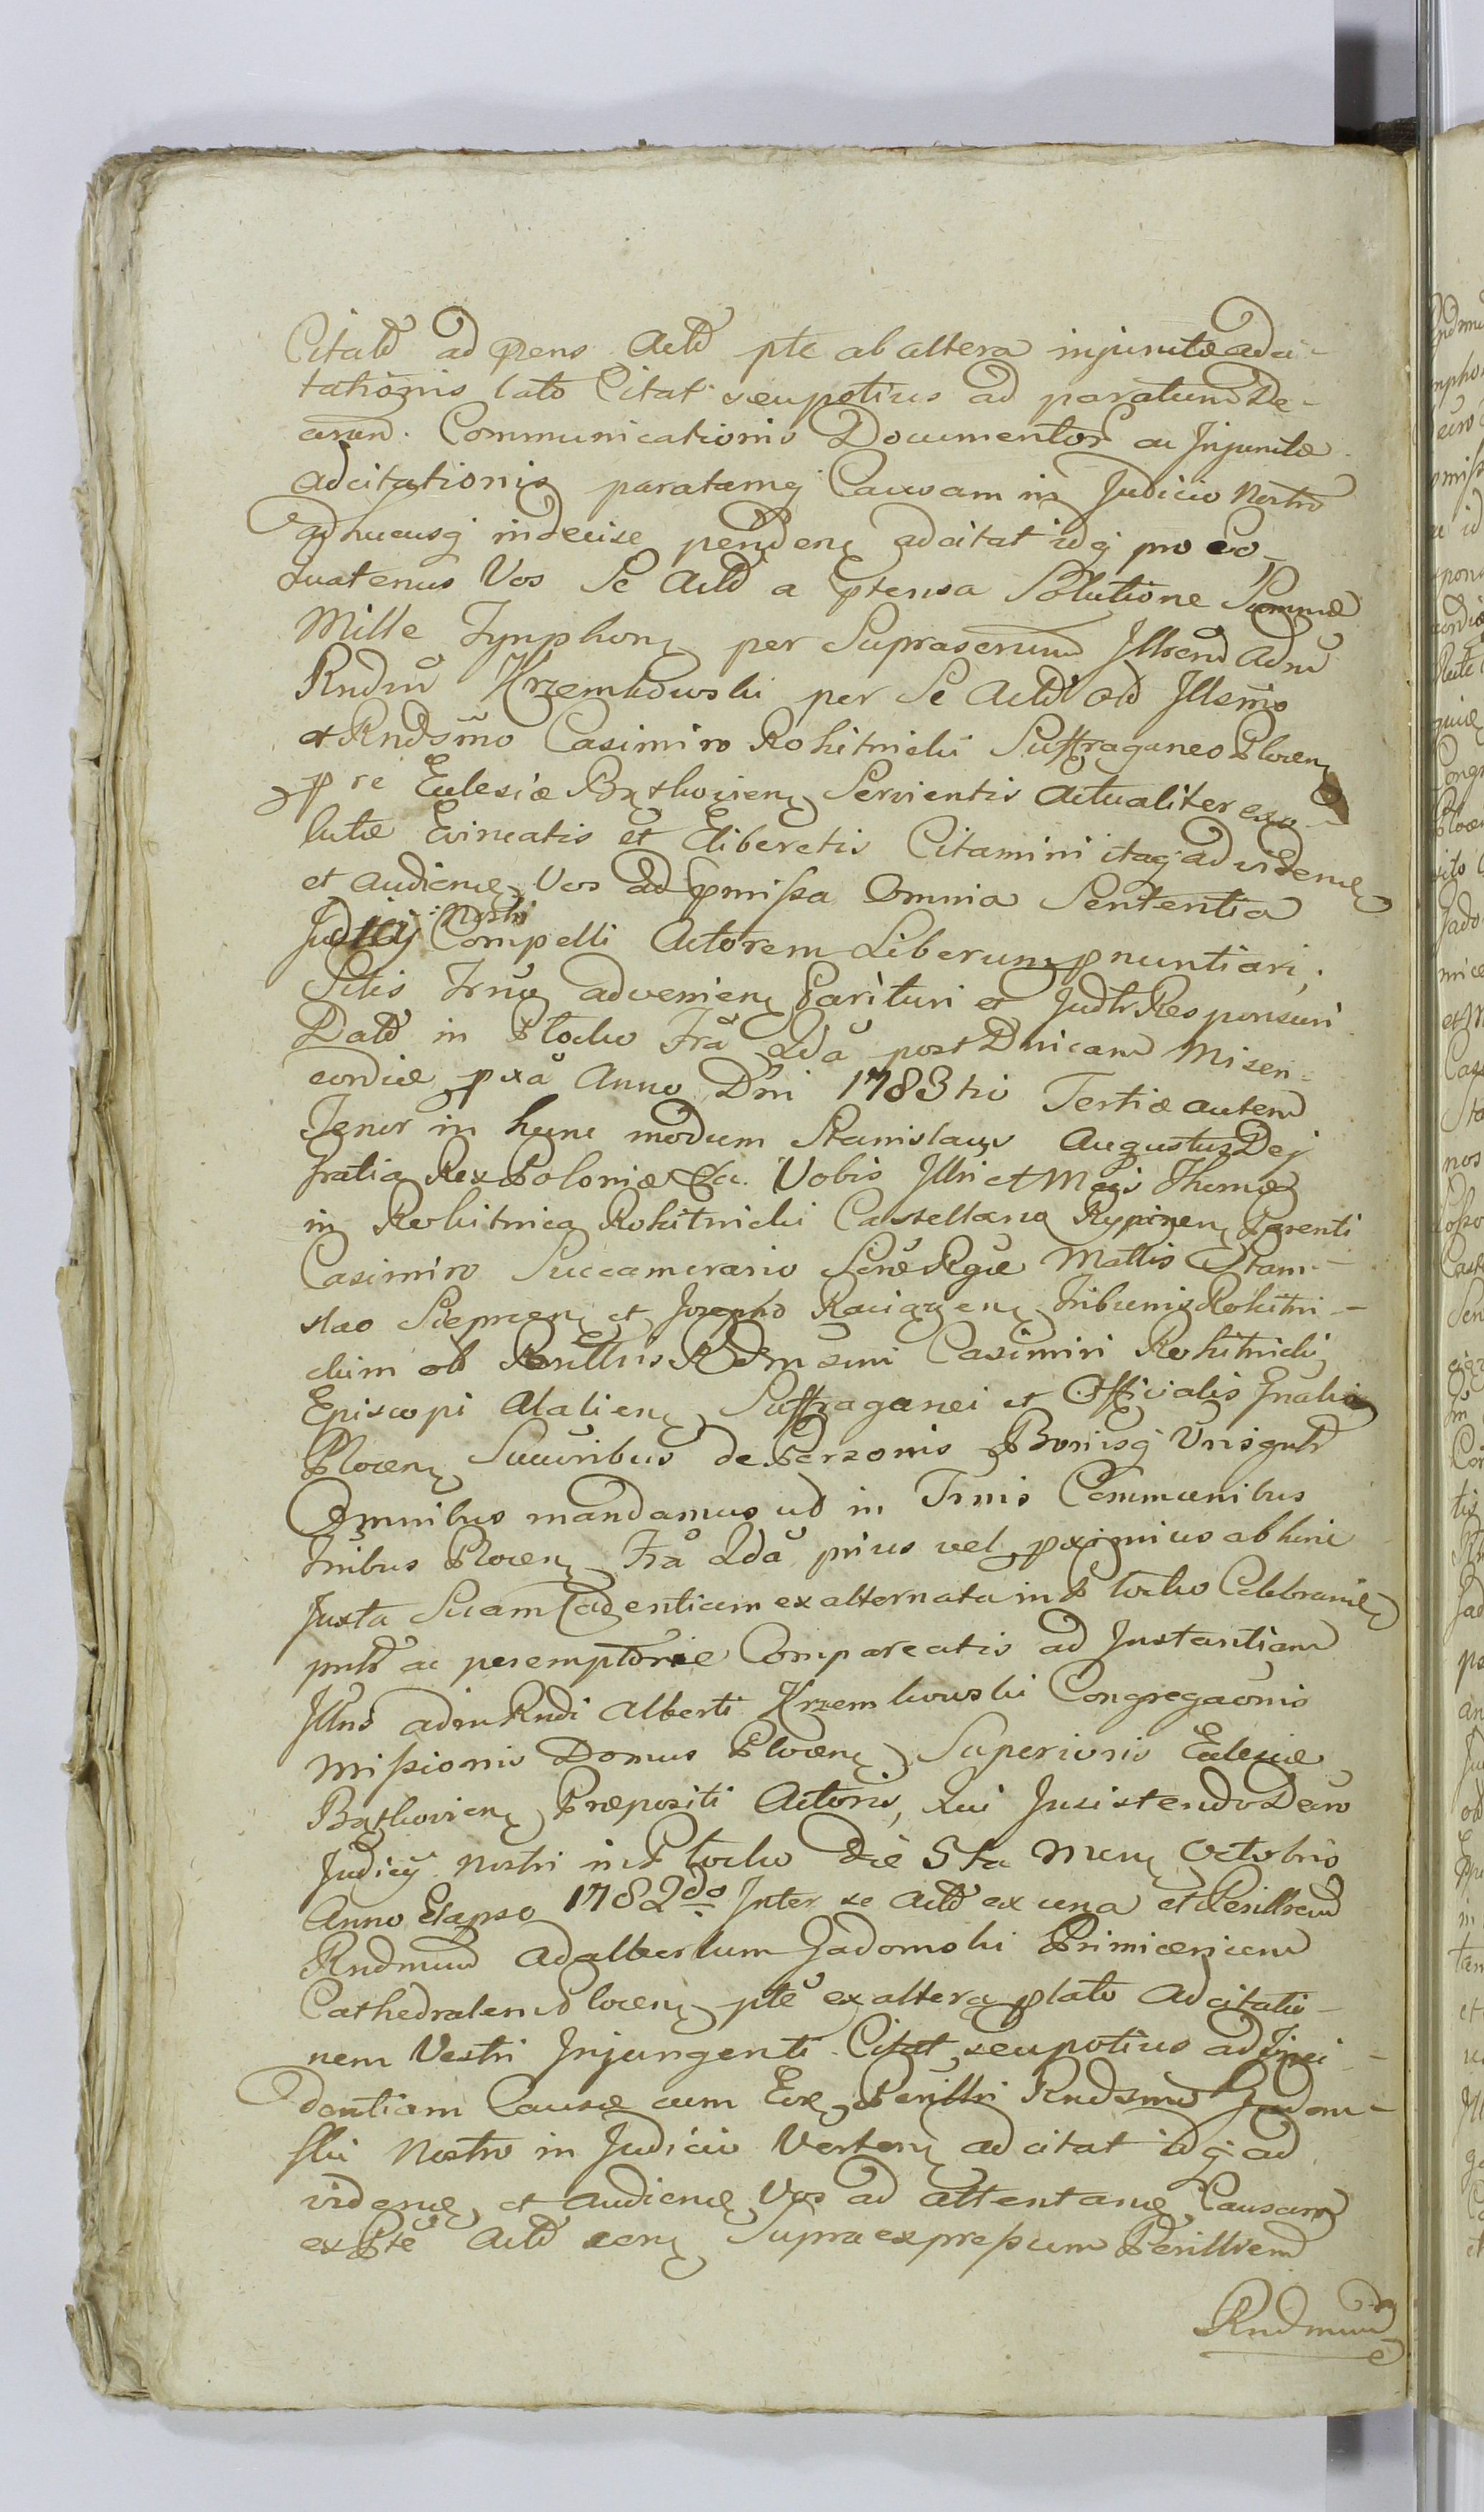 Citatd ad prens Actd pte ab altera injunctæ adci-
tationis lato Citat seu potius ad paratum De-
cerum. Communicationis Documentor ac Injunctæ
adcitationis paratamq Causam in Judicio Nostro
adhucusq indecise penden adcitat idq pro eo
Quatenus Vos Se Actd a ptensa Solutione Summæ
Mille Tynphon per Suprascrium Illrem Adm
Rndm Krzemkowski per Se Actd olD Illsmo
et Rndsmo Casimiro Rokitnicki Suffraganeo Plocen
p re Eclesiæ Bądkovien Servientis Actualiter exo-
lutæ Evincatis et Eliberetis Citamini itaq ad videnḿ
et audienḿ Vos ad pmissa Omnia Sententia
Judicij Nostri Compelli Actorem Liberum pnuntiari,
Sitis Trno advenien Parituri et Judtr Responsuri
Datd in Plocko Fra 2da post Dnicam Miseri-
cordiæ pxa Anno Dni 1783tio Tertiæ autem
Tenor in hunc modum Stanislaus Augustus Dej
Gratia Rex Poloniæ &a. Vobis Illri et Mgis Thomæ
in Rokitnica Rokitnicki Castellano Rypinen Parenti
Casimiro Succamerario Scræ Rgiæ Mattis Stani-
slao Sieprcen et Josepho Raciązen Tribunis Rokitni-
ckim olD Perillris Rdmsmi Casimiri Rokitnicki
Episcopi Atalien Suffraganei et Officialis Gnalis
Plocen Succoribus de Personis Bonisq Vrisgnltr
Omnibus mandamus ut in Trnis Communibus
Tribus Plocen Fra 2da prius vel proximius ab hinc
Juxta Suam Cadentiam ex alternata in Plocko Celebranḿ
pnltr ac peremptorie Compareatis ad Instantiam
Illris adm Rndi Alberti Krzemkowski Congregaonis
Missionis Domus Plocen Superioris Eclesiæ
Bądkovien Præpositi Actoris, Qui Insistendo Decro
Judicij Nostri in Plocko Die 5ta Men Octobris
Anno Elapso 1782do Inter se Actd ex una et Perillrem
Rndmum Adalbertum Gadomski Primicerium
Cathedralem Plocen pte ex altera plato Adcitatio-
nem Vestri Injungenti Citat, seu potius ad Inci-
dentiam Causæ cum Eod Perillri Rndsmo Gadom-
ski Nostro in Judicio Verten adcitat idq ad
videnḿ et audienḿ Vos ad attentanḿ Causam
ex Pte Actd cen Supra expressum Perillrem
Rndmum